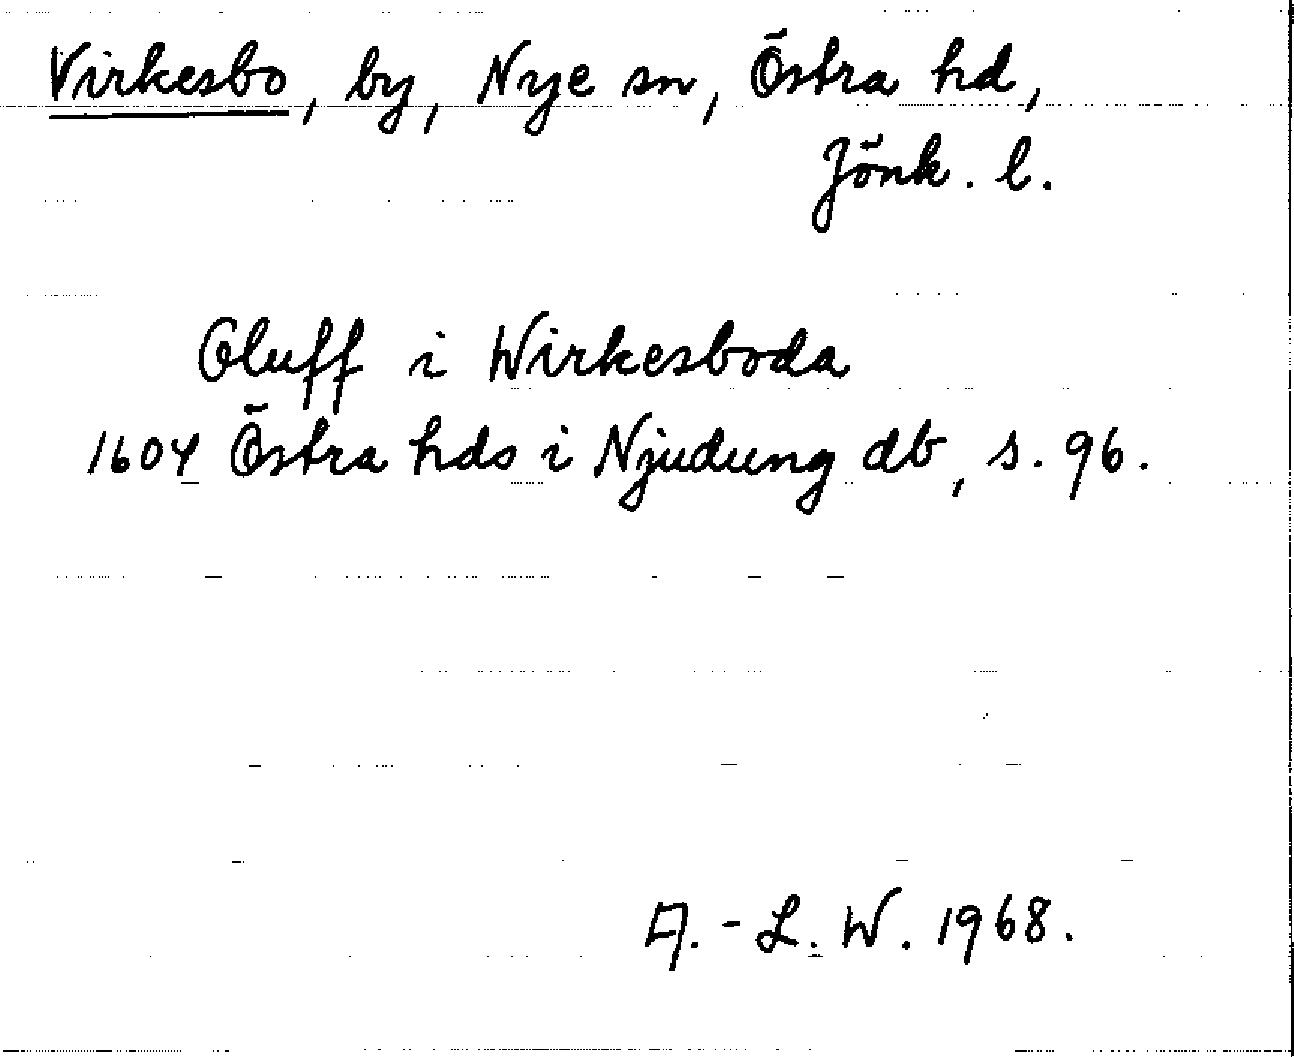 Virkesbo, by, Nye sn, Östra hd,
Jönk. l.
Oluff i Wirkesboda
1604 Östra hds i Njudung db, s. 96.
A.-L. W. 1968.